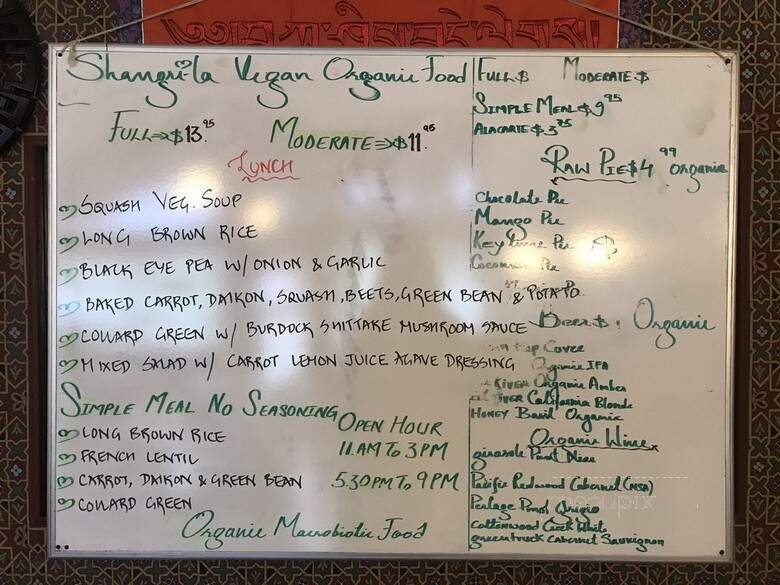 Shangrila Vegan Organic Food
FULL⇒$13.95 MODERATE⇒$11.95
LUNCH
SQUASH VEG. SOUP
LONG BROWN RICE
BLACK EYE PEA W/ ONION & GARLIC
BAKED CARROT, DAIKON, SQUASH, BEETS, GREEN BEAN & POTATO
COLLARD GREEN W/ BURDOCK SHITTAKE MUSHROOM SAUCE
MIXED SALAD W/ CARROT LEMON JUICE AGAVE DRESSING
SIMPLE MEAL NO SEASONING
LONG BROWN RICE
FRENCH LENTIL
CARROT, DAIKON & GREEN BEAN
COLLARD GREEN
OPEN HOUR
11.AM TO 3PM
5.30PM TO 9PM
Organic Macrobiotic Food
FULL $ MODERATE $
SIMPLE MEAL $9.95
ALACARTE $3.75
RAW PIE $4.99 organic
Chocolate Pie
Mango Pie
Key Lime Pie
Pie
Beer $ Organic
Organic IPA
RIVER Organic Amber
RIVER California Blonde
HONEY Basil Organic
Organic Wine
girasole Pinot
Pacific Redwood Cabernet (NSA)
Perlage Pinot Grigio
Cottonwood Creek White
greentruck Cabernet Sauvignon